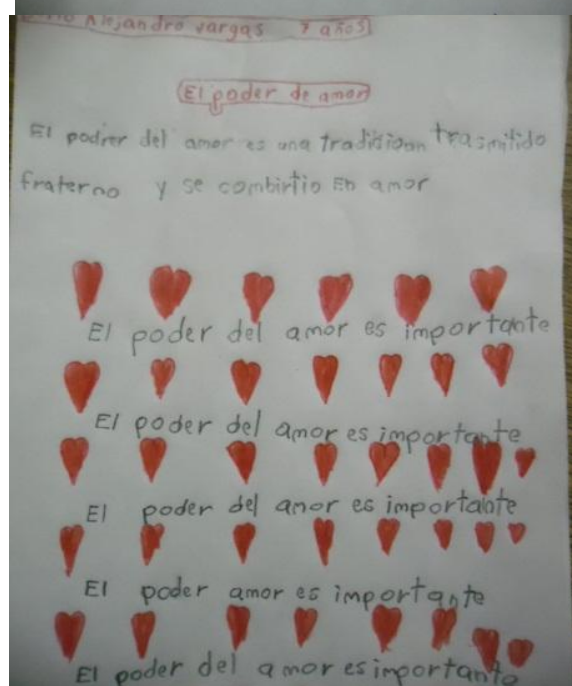 Alejandro vargas 7 años
El poder de amor
El podrer del amor es una tradition trasmitido
fraterno y se combirtio En amor
El poder del amor es importante
El poder del amor es importante
El poder del amor es importante
El poder amor es importante
El poder del amor es importante